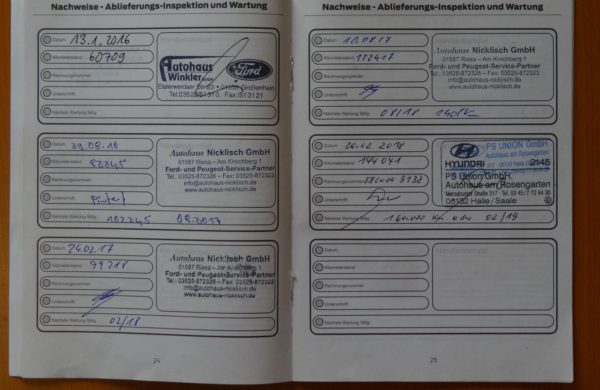 Nachweise - Ablieferungs-Inspektion und Wartung
Datum: 13.1.2016
Kilometerstand: 60709
Rechnungsnummer:
Unterschrift:
Nächste Wartung fällig:
Autohaus
Winkler GmbH
Ford
Elsterwerdaer Str. 23 • 01558 Großenhain
Tel. 03522/51310, Fax: 513121
Datum: 29.08.16
Kilometerstand: 82245
Rechnungsnummer:
Unterschrift:
Nächste Wartung fällig: 102245 08.2017
Autohaus Nicklisch GmbH
01587 Riesa – Am Kirschberg 1
Ford- und Peugeot-Service-Partner
Tel.: 03525-872328 – Fax: 03525-872323
info@autohaus-nicklisch.de
www.autohaus-nicklisch.de
Datum: 24.02.17
Kilometerstand: 99218
Rechnungsnummer:
Unterschrift:
Nächste Wartung fällig: 02/18
Autohaus Nicklisch GmbH
01587 Riesa – Am Kirschberg 1
Ford- und Peugeot-Service-Partner
Tel.: 03525-872328 – Fax: 03525-872323
info@autohaus-nicklisch.de
www.autohaus-nicklisch.de
24
Nachweise - Ablieferungs-Inspektion und Wartung
Datum: 10.08.17
Kilometerstand: 122417
Rechnungsnummer:
Unterschrift:
Nächste Wartung fällig: 08/18
Autohaus Nicklisch GmbH
01587 Riesa – Am Kirschberg 1
Ford- und Peugeot-Service-Partner
Tel.: 03525-872328 – Fax: 03525-872323
info@autohaus-nicklisch.de
www.autohaus-nicklisch.de
Datum: 20.02.2018
Kilometerstand: 144041
Rechnungsnummer:
Unterschrift:
Nächste Wartung fällig: 160.000 km oder 02/19
HYUNDAI
PS UNION GmbH
Autohaus am Rosengarten
2145
PS Union GmbH,
Autohaus am Rosengarten
06132 Halle / Saale
Datum:
Kilometerstand:
Rechnungsnummer:
Unterschrift:
Nächste Wartung fällig:
Händlerstempel
25